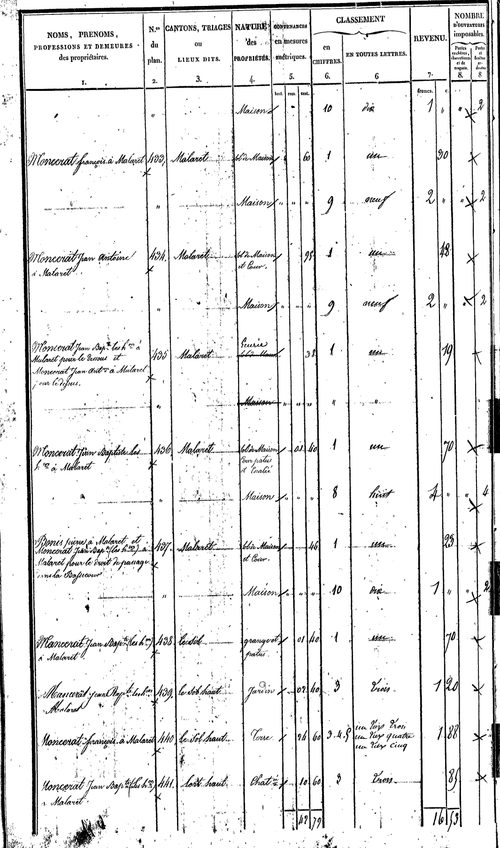 NOMS, PRENOMS,
PROFESSIONS ET DEMEURES
des propriétaires.
N.os
du
plan.
CANTONS, TRIAGES
ou
LIEUX DITS.
NATURE
des
PROPRIÉTÉS.
CONTENANCES
en mesures
métriques.
CLASSEMENT
en
CHIFFRES.
EN TOUTES LETTRES.
REVENU.
NOMBRE
D'OUVERTURES
imposables.
1. 2. 3. 4. 5. 6. 6 7. 8. 8.
francs. c
" Maison 10 dix 1 " " 2
Moncerat françois à Malaret 433 Malaret sol de Maison 60 1 un 30
" Maison " " " 9 neuf 2 " " 2
Moncerat Jean Antoine
à Malaret 434 Malaret sol de Maison
et Cour. 98 1 un 48
" Maison " " " 9 neuf 2 " 2
Moncerat Jean Bap.te les h.rs à
Malaret pour le dessous et
Moncerat Jean Ant.ne à Malaret
pour le dessus. 435 Malaret Ecurie 38 1 un 19
" Maison " " " "
Moncerat Jean Baptiste les
h.rs à Malaret 436 Malaret sol de Maison
Cour patus
01 40 1 un 70
" Maison " " " 8 huit 4 " " 4
Bonis pierre à Malaret et
Moncerat Jean Bap.te (les h.rs) à
Malaret pour le droit de passage
dans la Bassecour 437 Malaret sol de Maison
et Cour. 46 1 un 23
" Maison " " " 10 dix 1 " " 2
Moncerat Jean Bap.te (les h.rs)
à Malaret 438 le sol grange et
patus 01 40 1 un 70
Moncerat Jean Bap.te les h.rs
Malaret 439 le sol haut Jardin 02 40 3 trois 1 20
Moncerat françois à Malaret 440 le sol haut Terre 24 60 3.4.5 un tiers trois
un tiers quatre
un tiers cinq 1 28
Moncerat Jean Bap.te (les h.rs)
à Malaret 441 haut Chat.re 10 60 3 trois 85
42 79 16 53